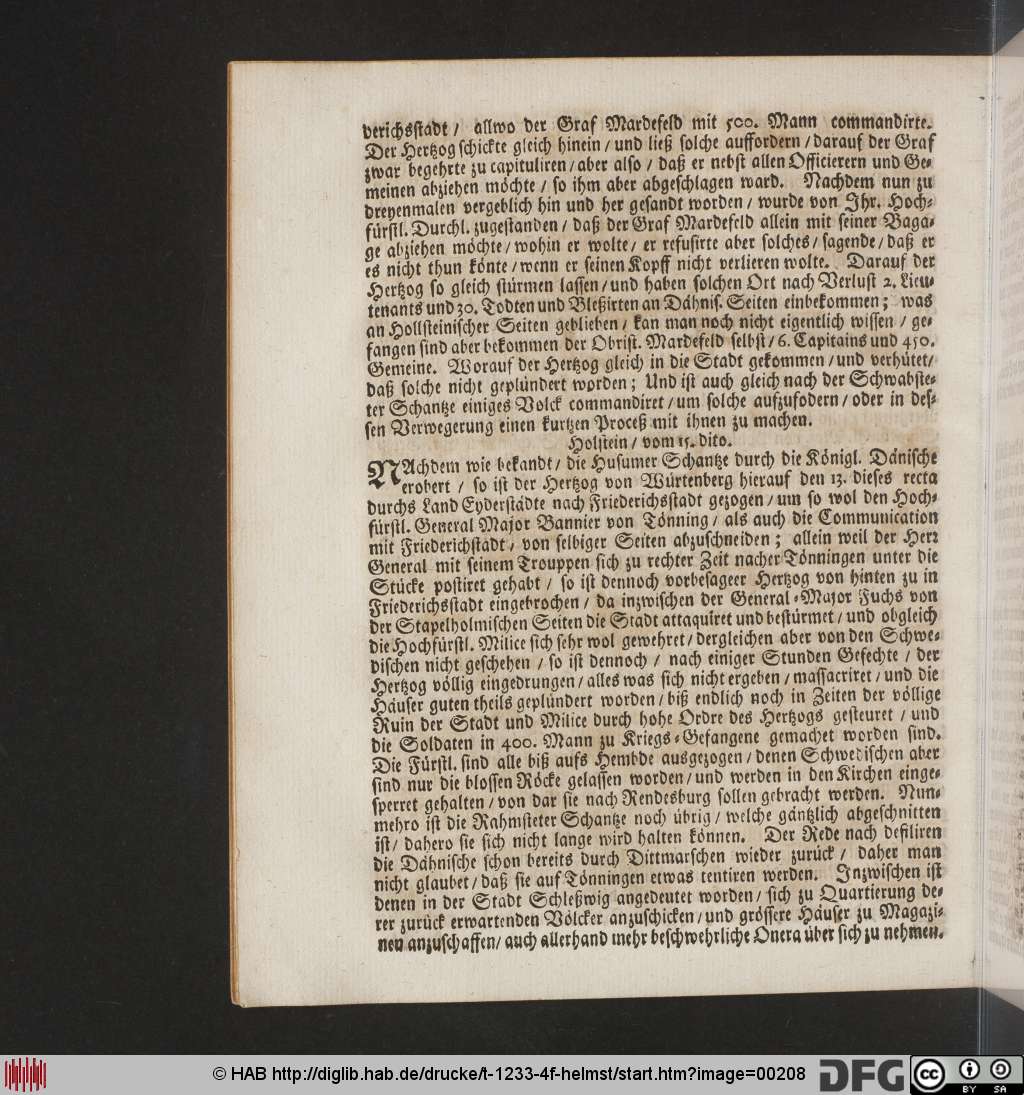 derichsstadt / allwo der Graf Mardefeld mit 500. Mann commandirte.
Der Hertzog schickte gleich hinein / und ließ solche auffordern / darauf der Graf
zwar begehrte zu capituliren / aber also / daß er nebst allen Officierern und Ge-
meinen abziehen möchte / so ihm aber abgeschlagen ward. Nachdem nun zu
dreyenmalen vergeblich hin und her gesandt worden / wurde von Ihr. Hoch-
fürstl. Durchl. zugestanden / daß der Graf Mardefeld allein mit seiner Baga-
ge abziehen möchte / wohin er wolte / er refusirte aber solches / sagende / daß er
es nicht thun könte / wenn er seinen Kopff nicht verlieren wolte. Darauf der
Hertzog so gleich stürmen lassen / und haben solchen Ort nach Verlust 2. Lieu-
tenants und 30. Todten und Bleßirten an Dähnis. Seiten einbekommen; was
an Hollsteinischer Seiten geblieben / kan man noch nicht eigentlich wissen / ge-
fangen sind aber bekommen der Obrist. Mardefeld selbst / 6. Capitains und 450.
Gemeine. Worauf der Hertzog gleich in die Stadt gekommen / und verhütet /
daß solche nicht geplündert worden; Und ist auch gleich nach der Schwabste-
ter Schantze einiges Volck commandiret / um solche aufzufodern / oder in des-
sen Verwegerung einen kurtzen Proceß mit ihnen zu machen.
Holstein / vom 15. dito.
NAchdem wie bekandt / die Husumer Schantze durch die Königl. Dänische
erobert / so ist der Hertzog von Würtenberg hierauf den 13. dieses recta
durchs Land Eyderstädte nach Friederichsstadt gezogen / um so wol den Hoch-
fürstl. General Major Bannier von Tönning / als auch die Communication
mit Friederichstadt / von selbiger Seiten abzuschneiden; allein weil der Herr
General mit seinem Trouppen sich zu rechter Zeit nacher Tönningen unter die
Stücke postiret gehabt / so ist dennoch vorbesageer Hertzog von hinten zu in
Friederichsstadt eingebrochen / da inzwischen der General-Major Fuchs von
der Stapelholmischen Seiten die Stadt attaquiret und bestürmet / und obgleich
die Hochfürstl. Milice sich sehr wol gewehret / dergleichen aber von den Schwe-
dischen nicht geschehen / so ist dennoch / nach einiger Stunden Gefechte / der
Hertzog völlig eingedrungen / alles was sich nicht ergeben / massacriret / und die
Häuser guten theils geplündert worden / biß endlich noch in Zeiten der völlige
Ruin der Stadt und Milice durch hohe Ordre des Hertzogs gesteuret / und
die Soldaten in 400. Mann zu Kriegs-Gefangene gemachet worden sind.
Die Fürstl. sind alle biß aufs Hembde ausgezogen / denen Schwedischen aber
sind nur die blossen Röcke gelassen worden / und werden in den Kirchen einge-
sperret gehalten / von dar sie nach Rendesburg sollen gebracht werden. Nun-
mehro ist die Rahmsteter Schantze noch übrig / welche gäntzlich abgeschnitten
ist / dahero sie sich nicht lange wird halten können. Der Rede nach defiliren
die Dähnische schon bereits durch Dittmarschen wieder zurück / daher man
nicht glaubet / daß sie auf Tönningen etwas tentiren werden. Inzwischen ist
denen in der Stadt Schleßwig angedeutet worden / sich zu Quartierung de-
rer zurück erwartenden Völcker anzuschicken / und grössere Häuser zu Magazi-
nen anzuschaffen / auch allerhand mehr beschwehrliche Onera über sich zu nehmen.
© HAB http://diglib.hab.de/drucke/t-1233-4f-helmst/start.htm?image=00208
DFG
cc BY SA